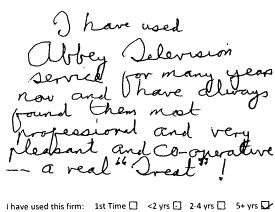 I have used
Abbey Television
service for many years
now and I have always
found them most
professional and very
pleasant and co-operative
-- a real "Treat" !
I have used this firm: 1st Time ☐ <2 yrs ☐ 2-4 yrs ☐ 5+ yrs ☑